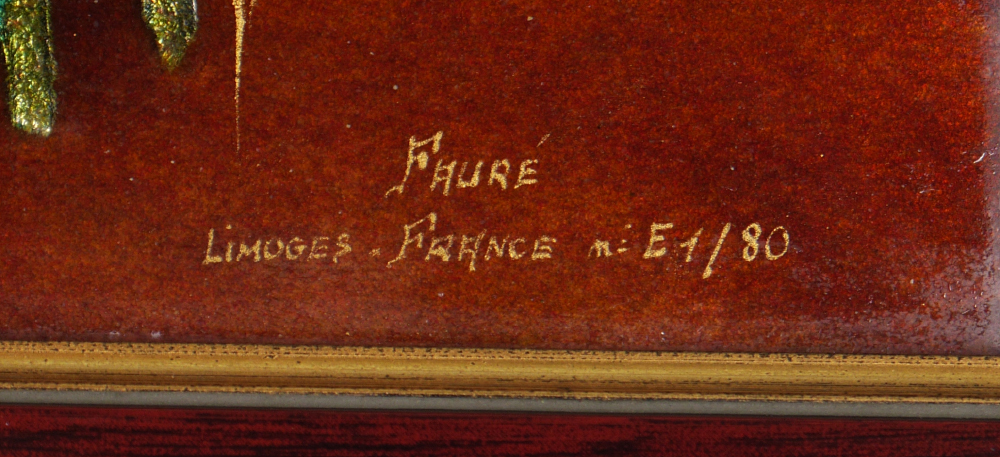 FAURÉ
LIMOGES. FRANCE n: E1/80